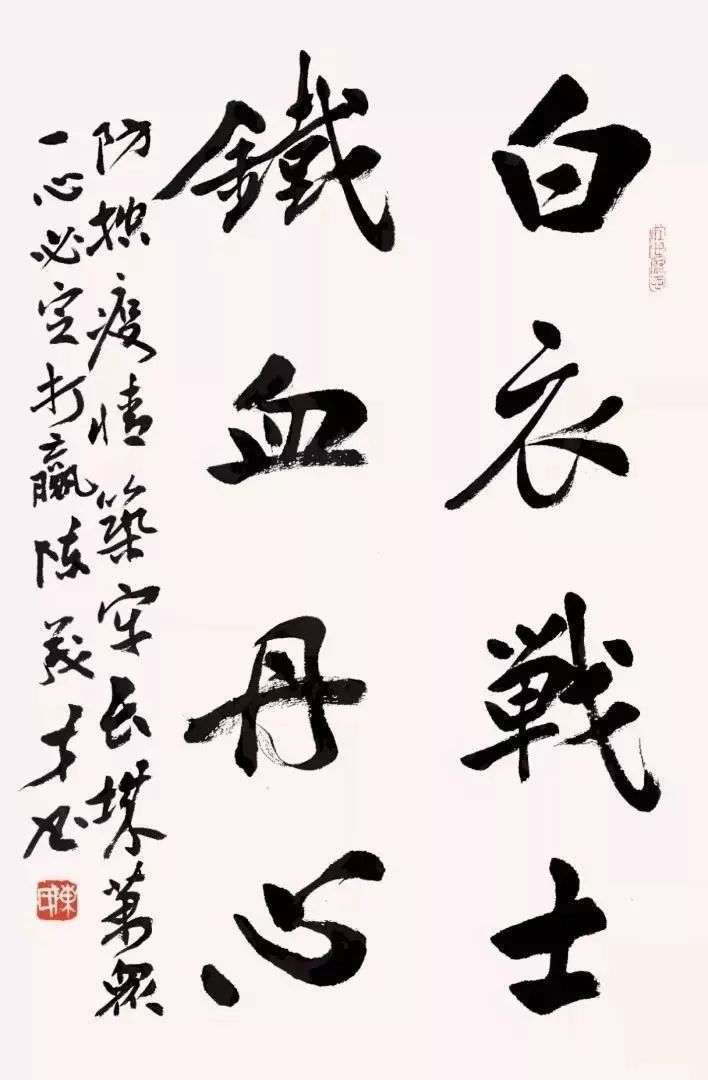 白衣戦士
鐵血丹心
防控疫情築牢長城萬眾
一心必定打贏陳義才书